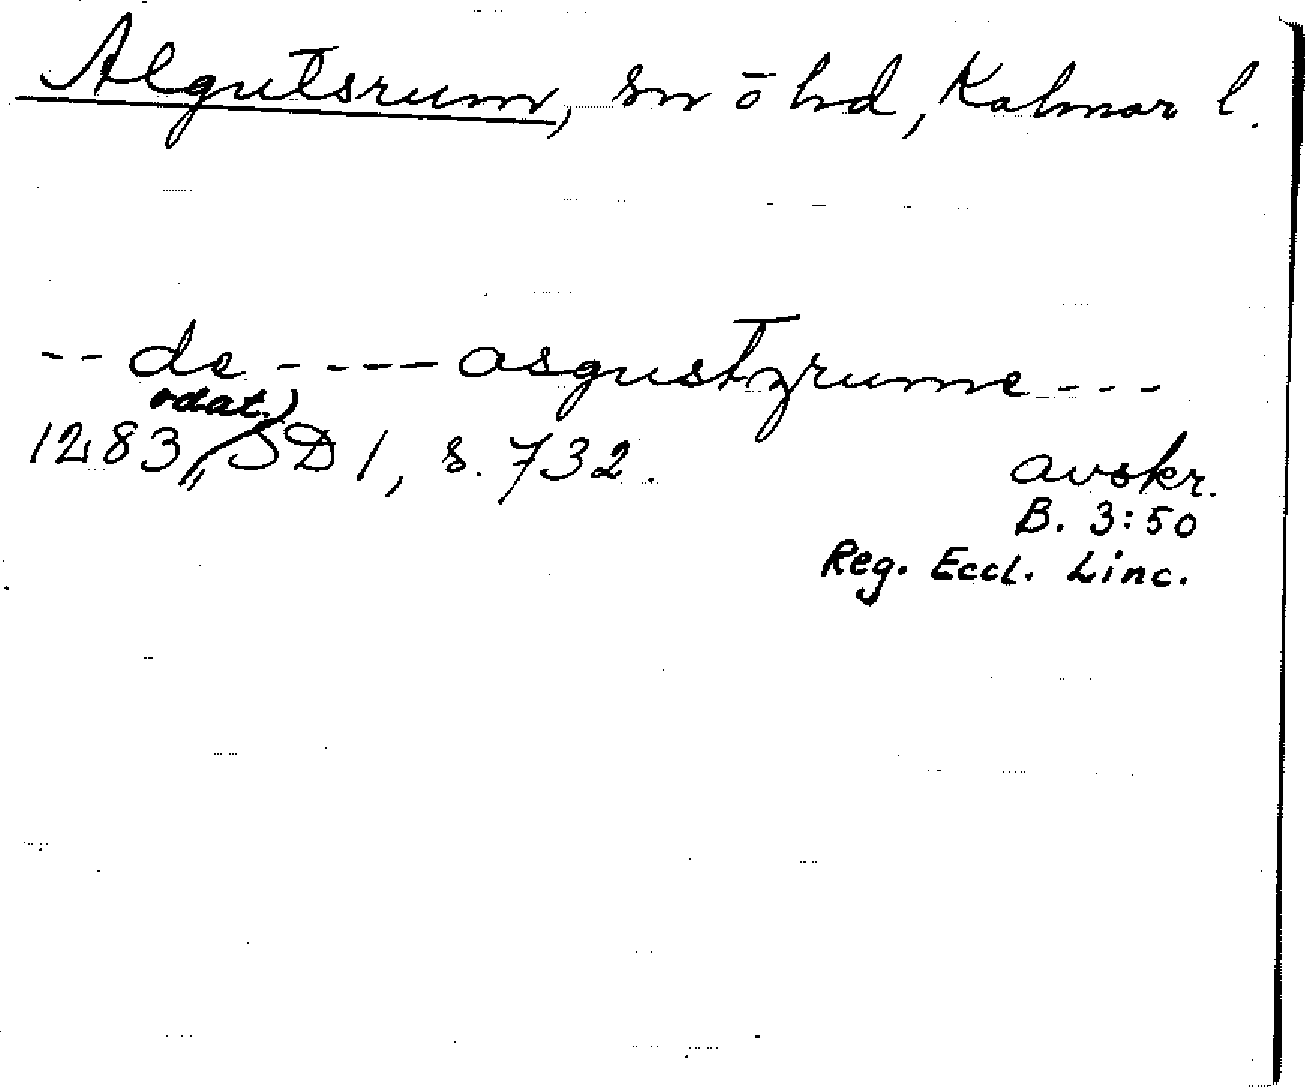 Algutsrum, sn o hd, Kalmar l.
-- de ---- asgustzrume ---
odat.)
1283, SD 1, s. 732.
avskr.
B. 3:50
Reg. Eccl. Linc.